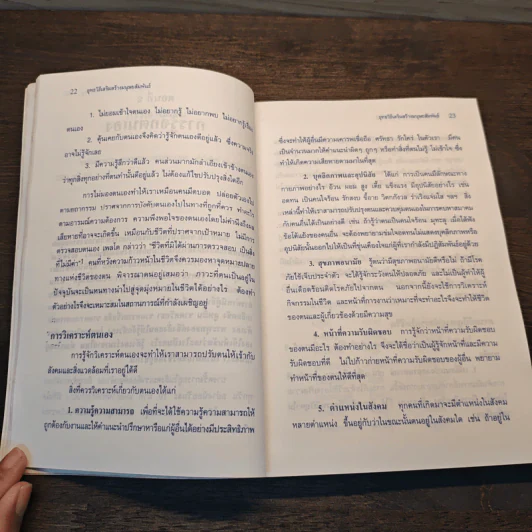 22 ยุทธวิธีเสริมสร้างมนุษยสัมพันธ์
1. ไม่ยอมเข้าใจตนเอง ไม่อยากรู้ ไม่อยากพบ ไม่อยากดูเรื่อง
ตนเอง
2. คุ้นเคยกับตนเองจึงคิดว่ารู้จักตนเองดีอยู่แล้ว ซึ่งความจริง
อาจไม่รู้จักเลย
3. มีความรู้สึกว่าดีแล้ว คนส่วนมากมักลำเอียงเข้าข้างตนเอง
ว่าทุกสิ่งทุกอย่างที่ตนทำนั้นดีอยู่แล้ว ไม่ต้องแก้ไขปรับปรุงสิ่งใดอีก
การไม่มองตนเองทำให้เราเหมือนคนมืดบอด ปล่อยตัวเองไป
ตามยถากรรม ปราศจากการบังคับตนเองไปในทางที่ถูกที่ควร ทำอะไร
ตามอารมณ์ความต้องการ ความพึงพอใจของตนเองโดยไม่คำนึงถึงผล
เสียหายที่อาจจะเกิดขึ้น เหมือนกับชีวิตที่ปราศจากเป้าหมาย ไม่มีการ
ตรวจสอบตนเอง เพลโต กล่าวว่า "ชีวิตที่มิได้ผ่านการตรวจสอบ เป็นสิ่ง
ที่ไม่มีค่า" คนที่หวังความก้าวหน้าในชีวิตจึงควรมองหาจุดหมายปลาย
ทางแห่งชีวิตของตน พิจารณาตนอยู่เสมอว่า ภาวะที่ตนเป็นอยู่ใน
ปัจจุบันจะเป็นหนทางนำไปสู่จุดมุ่งหมายในชีวิตได้อย่างไร ต้องทำ
ตัวอย่างไรจึงจะเหมาะสมในสถานการณ์ที่กำลังเผชิญอยู่
การวิเคราะห์ตนเอง
การรู้จักวิเคราะห์ตนเองจะทำให้เราสามารถปรับตนให้เข้ากับ
สังคมและสิ่งแวดล้อมที่เราอยู่ได้ดี
สิ่งที่ควรวิเคราะห์เกี่ยวกับตนเองได้แก่
1. ความรู้ความสามารถ เพื่อที่จะได้ใช้ความรู้ความสามารถให้
ถูกต้องกับงานและให้คำแนะนำปรึกษาหารือแก่ผู้อื่นได้อย่างมีประสิทธิภาพ
ยุทธวิธีเสริมสร้างมนุษยสัมพันธ์ 23
ซึ่งจะทำให้ผู้อื่นมีความเคารพเชื่อถือ ศรัทธา รักใคร่ ในตัวเรา มีคน
เป็นจำนวนมากได้คำแนะนำผิดๆ ถูกๆ หรือทำสิ่งที่ตนไม่รู้ ไม่เข้าใจ ซึ่ง
ทำให้เกิดความเสียหายตามมาในที่สุด
2. บุคลิกภาพและอุปนิสัย ได้แก่ การเป็นคนมีลักษณะทาง
กายภาพอย่างไร อ้วน ผอม สูง เตี้ย แข็งแรง มีอุปนิสัยอย่างไร เช่น
อดทน เป็นคนใจร้อน รักสงบ ขี้อาย วิตกกังวล ร่าเริงแจ่มใส ฯลฯ สิ่ง
เหล่านี้ทำให้เราสามารถปรับปรุงตนและควบคุมตนเองในการคบหาสมาคม
กับคนอื่นได้เป็นอย่างดี เช่น ถ้ารู้ว่าตนเป็นคนใจร้อน มุทะลุ เมื่อได้ฟัง
ข้อโต้แย้งของคนอื่น จะต้องพยายามข่มใจอดทนไม่แสดงบุคลิกภาพหรือ
อุปนิสัยนั้นออกไปให้เป็นที่ขุ่นเคืองใจแก่ผู้ที่เรากำลังมีปฏิสัมพันธ์อยู่ด้วย
3. สุขภาพอนามัย รู้ตนว่ามีสุขภาพอนามัยดีหรือไม่ ถ้ามีโรค
ภัยไข้เจ็บประจำตัว จะได้รู้จักระวังตนให้ปลอดภัย และไม่เป็นผู้ทำให้ผู้
อื่นเดือดร้อนติดโรคภัยไปจากตน นอกจากนี้ยังจะใช้การวิเคราะห์
กิจกรรมในชีวิต และหน้าที่การงานว่าเหมาะที่จะทำอะไรจึงจะทำให้ชีวิต
ของตนและผู้เกี่ยวข้องด้วยมีความสุข
4. หน้าที่ความรับผิดชอบ การรู้จักว่าหน้าที่ความรับผิดชอบ
ของตนมีอะไร ต้องทำอย่างไร จึงจะได้ชื่อว่าเป็นผู้รู้จักหน้าที่และมีความ
รับผิดชอบที่ดี ไม่ไปก้าวก่ายหน้าที่ความรับผิดชอบของผู้อื่น พยายาม
ทำหน้าที่ของตนให้ดีที่สุด
5. ตำแหน่งในสังคม ทุกคนที่เกิดมาจะมีตำแหน่งในสังคม
หลายตำแหน่ง ขึ้นอยู่กับว่าในขณะนั้นตนอยู่ในสังคมใด เช่น ถ้าอยู่ใน